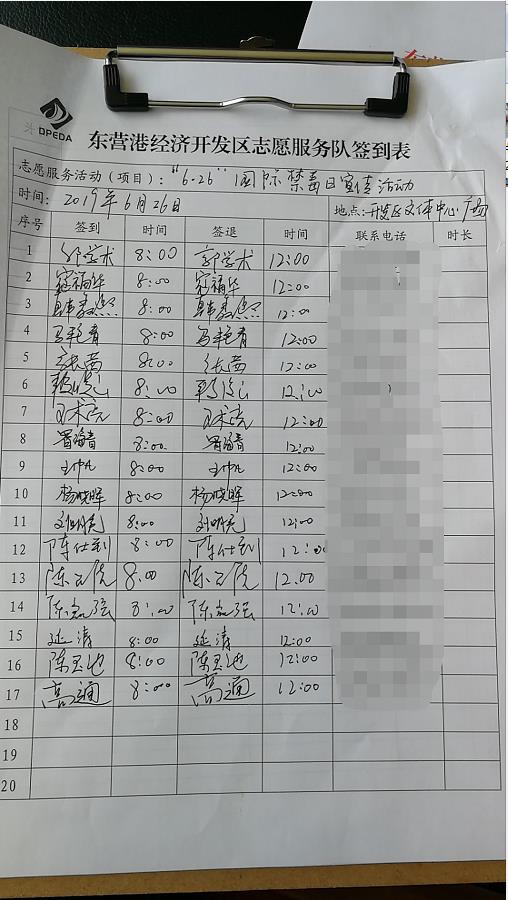 DPEDA
东营港经济开发区志愿服务队签到表
志愿服务活动（项目）：“6·26”国际禁毒日宣传活动
时间：2019年6月26日 地点：开发区文体中心广场
序号 签到 时间 签退 时间 联系电话 时长
1 郭学术 8:00 郭学术 12:00
2 寇福华 8:00 寇福华 12:00
3 8:00 12:00
4 马艳青 8:00 马艳青 12:00
5 张茜 8:00 张茜 12:00
6 8:00 12:00
7 8:00 12:00
8 8:00 12:00
9 8:00 12:00
10 杨晓晖 8:00 杨晓晖 12:00
11 刘明亮 8:00 刘明亮 12:00
12 陈仕利 8:00 陈仕利 12:00
13 8.00 12.00
14 8:00 12:00
15 延清 8:00 延清 12:00
16 8:00 12:00
17 高通 8:00 高通 12:00
18
19
20